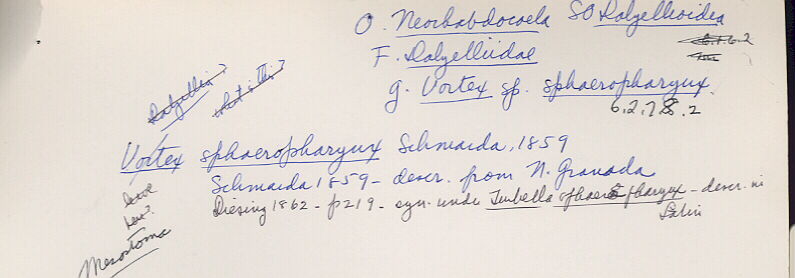 O. Neorhabdocoela SO Dalyellioidea
F. Dalyelliidae 6.1.6.2
g. Vortex sp. sphaeropharynx.
6.2.78.2
Dalyellia?
what is this?
Vortex sphaeropharynx Schmarda, 1859
Schmarda 1859 - descr. from N. Granada
Diesing 1862 - p219 - syn. under Turbella sphaeropharynx - descr. in
Latin
leave
here?
Mesostoma